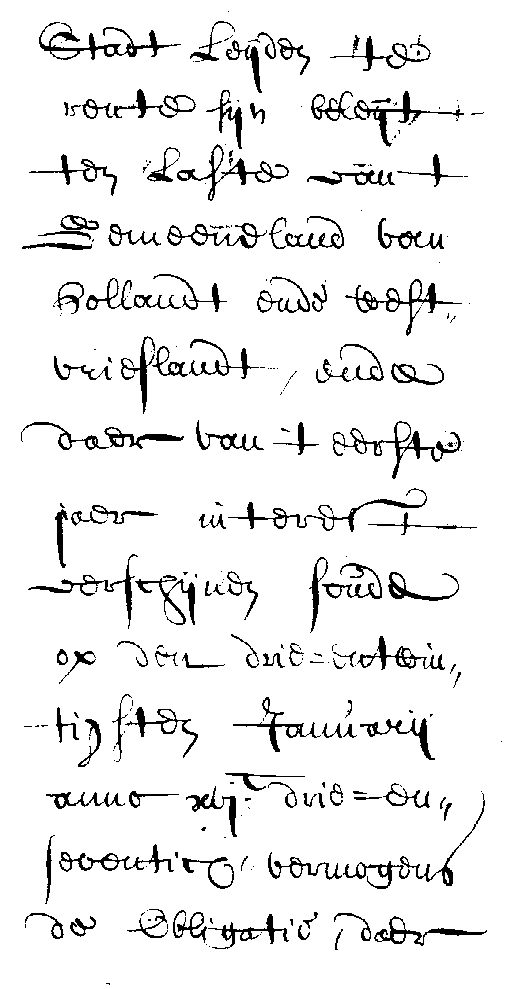 Stadt Leyden te
rente sijn beleyt
ten Laste van t
Gemeene land van
Hollandt ende west„
vrieslandt, ende
daer van t eerste
jaer interest
verschijnen soude
op den drie=entwin„
tichsten Januarij
anno xvjc drie=en„
seventich, vermogens
de Obligatie, daer